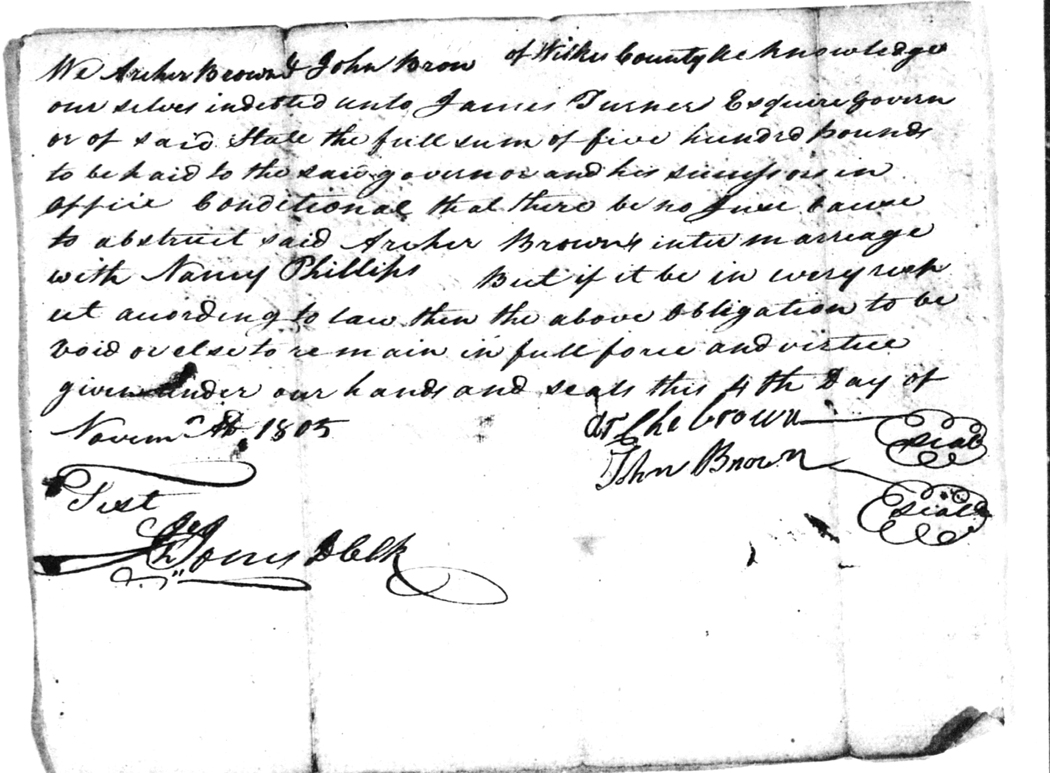 We Archer Brown & John Brow of Wilkes County Ac knowledge
our selves indebted unto James Turner Esquire Govern
or of said State the full sum of five hundrd pounds
to be paid to the said governor and his sucessors in
office Conditional that there be no Just Cause
to abstruct said Archer Brown's inter marriage
with Nancy Phillips But if it be in wery resp
ect acording to law then the above obligation to be
void or else to re main in full force and virtue
given under our hands and seals this 4th Day of
Novem 1805
Archebrown seal
John Brown seal
Test
Jones D Clk